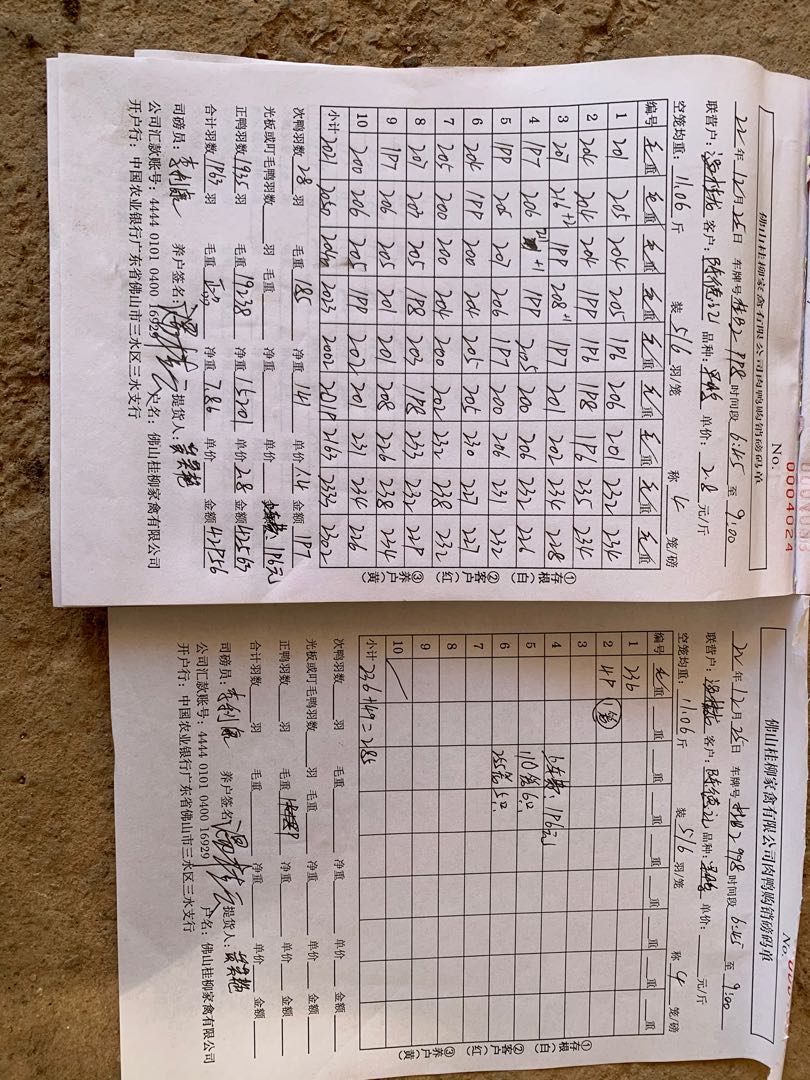 佛山桂柳家禽有限公司肉鸭购销磅码单
No. 0004024
22年12月25日 车牌号 998 时间段 6:45 至 9:00
联营户: 客户: 陈德 品种: 单价: 2.8 元/斤
空笼均重: 11.06 斤 装 5/6 羽/笼 称 4 笼/磅
编号 毛重 毛重 毛重 毛重 毛重 毛重 毛重 毛重 毛重
1 201 205 204 205 196 206 201 232 234
2 204 204 204 199 196 198 196 235 234
3 207 216+2 199 208+1 197 201 202 234 228
4 197 206 +1 199 205 200 206 232 226
5 199 205 207 206 197 200 206 231 232
6 204 199 200 204 205 205 230 227 227
7 205 200 200 204 200 202 232 238 232
8 207 207 205 198 203 198 233 232 229
9 197 206 205 201 201 208 226 238 234
10 200 206 205 199 202 201 231 234 226
小计 2021 2050 2040 2023 2002 2019 2163 2333 2302
①存根(白) ②客户(红) ③养户(黄)
次鸭羽数 28 羽 毛重 185 净重 141 单价 1.4 金额 197
光板或叮毛鸭羽数 羽 毛重 净重 单价 196元
正鸭羽数 1935 羽 毛重 19238 净重 15201 单价 2.8 金额 42563
合计羽数 1963 羽 毛重 净重 7.86 单价 金额 42956
司磅员: 李利 养户签名: 提货人:
公司汇款账号: 4444 0101 0400 16929 户名: 佛山桂柳家禽有限公司
开户行: 中国农业银行广东省佛山市三水区三水支行
佛山桂柳家禽有限公司肉鸭购销磅码单
No.
22年12月25日 车牌号 998 时间段 6:45 至 9:00
联营户: 客户: 陈德 品种: 单价: 元/斤
空笼均重: 11.06 斤 装 5/6 羽/笼 称 4 笼/磅
编号 毛重 重 重 重 重 重 重 重 重
1 236
2 49 1笼
3
4 196元
5 110笼6只
6 255笼5只
7
8
9
10
小计 236+49=285
①存根(白) ②客户(红) ③养户(黄)
次鸭羽数 羽 毛重 净重 单价 金额
光板或叮毛鸭羽数 羽 毛重 净重 单价 金额
正鸭羽数 羽 毛重 净重 单价 金额
合计羽数 羽 毛重 净重 单价 金额
司磅员: 李利 养户签名: 提货人:
公司汇款账号: 4444 0101 0400 16929 户名: 佛山桂柳家禽有限公司
开户行: 中国农业银行广东省佛山市三水区三水支行